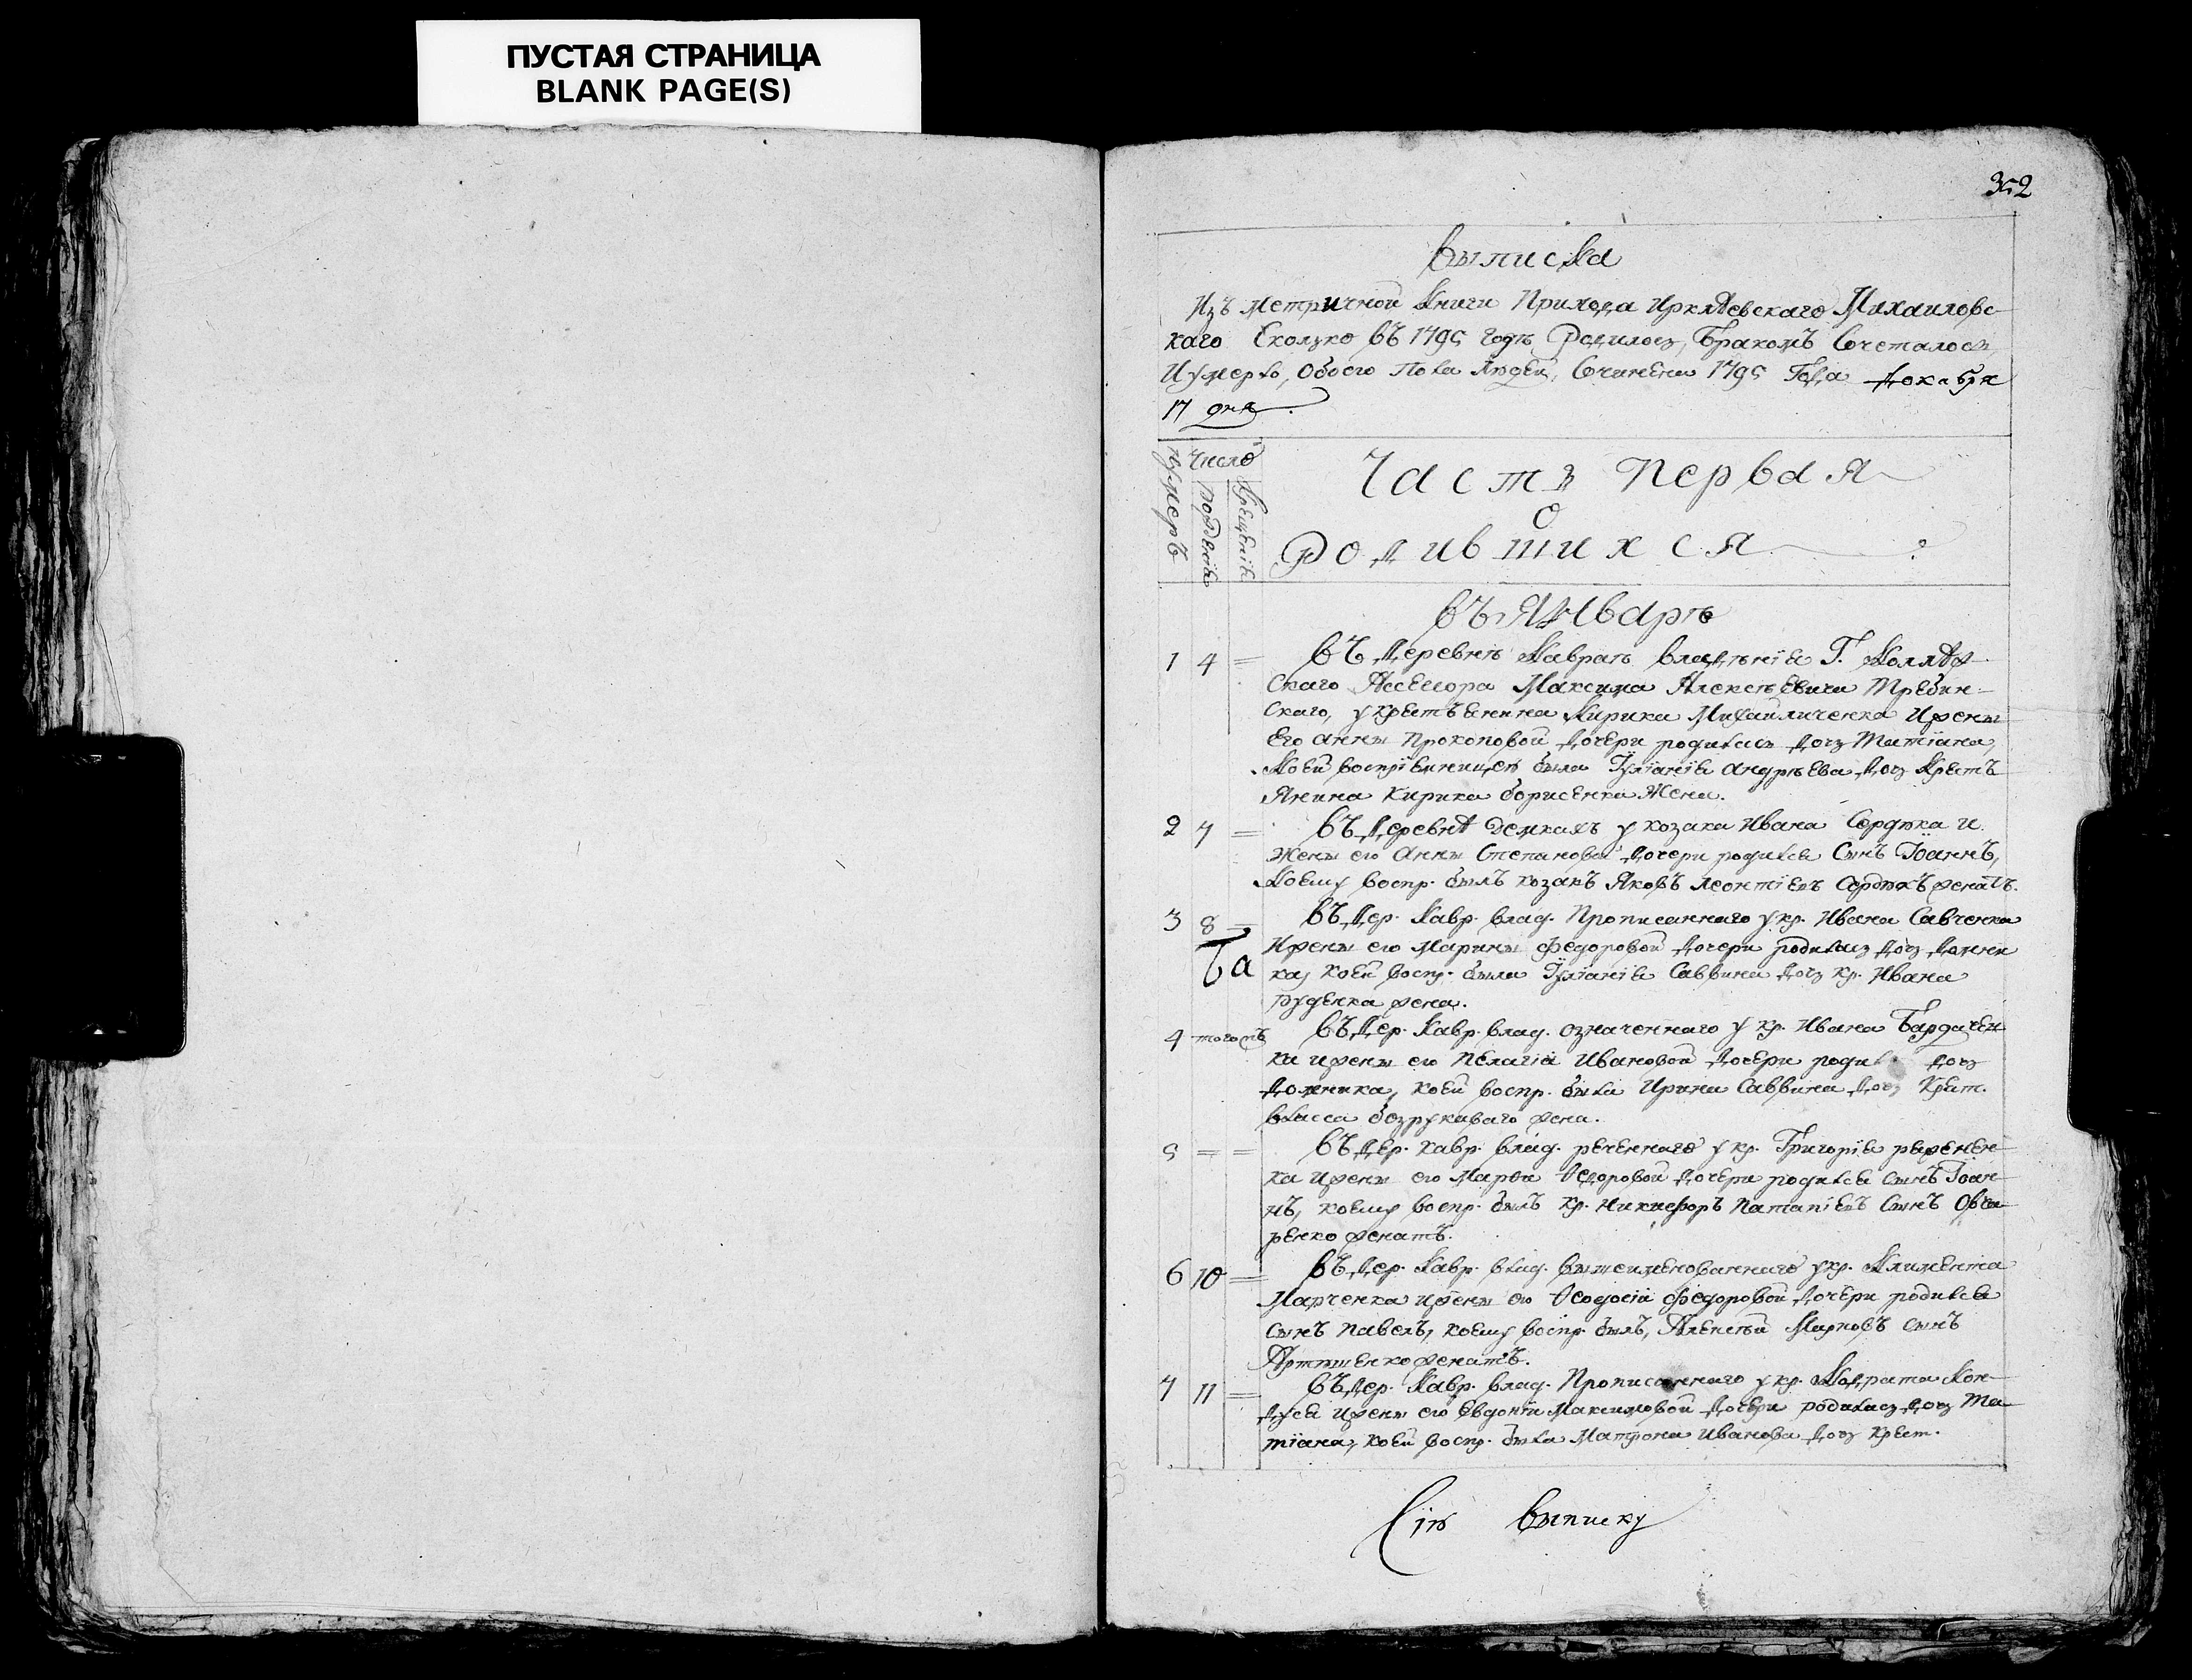 ПУСТАЯ СТРАНИЦА
BLANK PAGE(S)
352
Выписка
Изъ метричной книги Прихода Ирклѣевскаго Михаиловс-
каго Сколко въ 1795 годѣ Родилось, Бракомъ Сочеталось,
И умерло, Обоего Пола людей, Сочинена 1795 Года Декабря
17 дня.
нумеръ Число рождения крещения
Часть Первая
О
Родившихся
въ Январѣ
1 4 = въ Деревнѣ Каврае владѣния Г. Колляж-
скаго Ассесора Максима Алексѣевича Требин-
скаго, у крестьянина Кирика Михайличенка и жены
Его анны Прокоповой дочери родилась дочь Татїана,
коей воспрїемницей была Їулїанїя андрѣева дочь Крестъ-
янина Кирика борисенка Жена.
2 7 = въ Деревнѣ Демкахъ у козака Ивана Сердюка и
жены его Анны Степановой дочери родился Сынъ Їоаннъ,
коему воспр. былъ козакъ Яковъ Леонтїевъ Сердюкъ женатъ.
3 8 = въ Дер. Кавр. влад. Прописаннаго у кр. Ивана Савченка
И жены его Марины Федоровой дочери родилась дочь Домни
ка, коей воспр. была Їулїанїя Саввина дочь кр. Ивана
Руденка жена.
4 тогожъ въ Дер. Кавр. влад. означеннаго у кр. Ивана Бардачен
ка и жены его Пелагїи Ивановой дочери родил дочь
Домника, коей воспр. была Ирина Саввина дочь Крест.
власа безрукаваго жена.
5 = = въ Дер. кавр. влад. реченнаго у кр. Григорїя
ка и жены его Марѳи Ѳедоровой дочери родился сынъ Їоан-
нъ, коему воспр. былъ кр. Никифоръ Патапїевъ Сынъ Овча-
ренко женатъ.
6 10 = въ Дер. Кавр. влад. вышеименованнаго у кр. Климента
Марченка и жены его Ѳеодосїи Федоровой дочери родился
сынъ Павелъ, коему воспр. былъ, Алексѣй Марковъ сынъ
женатъ.
7 11 = въ Дер. Кавр. влад. Прописаннаго у кр. Кодрата Кон-
и жены его Евдокїи Максимовой дочери родилась дочь Та
тїана, коей воспр. была Матрона Иванова дочь Крест.
Сїю выписку